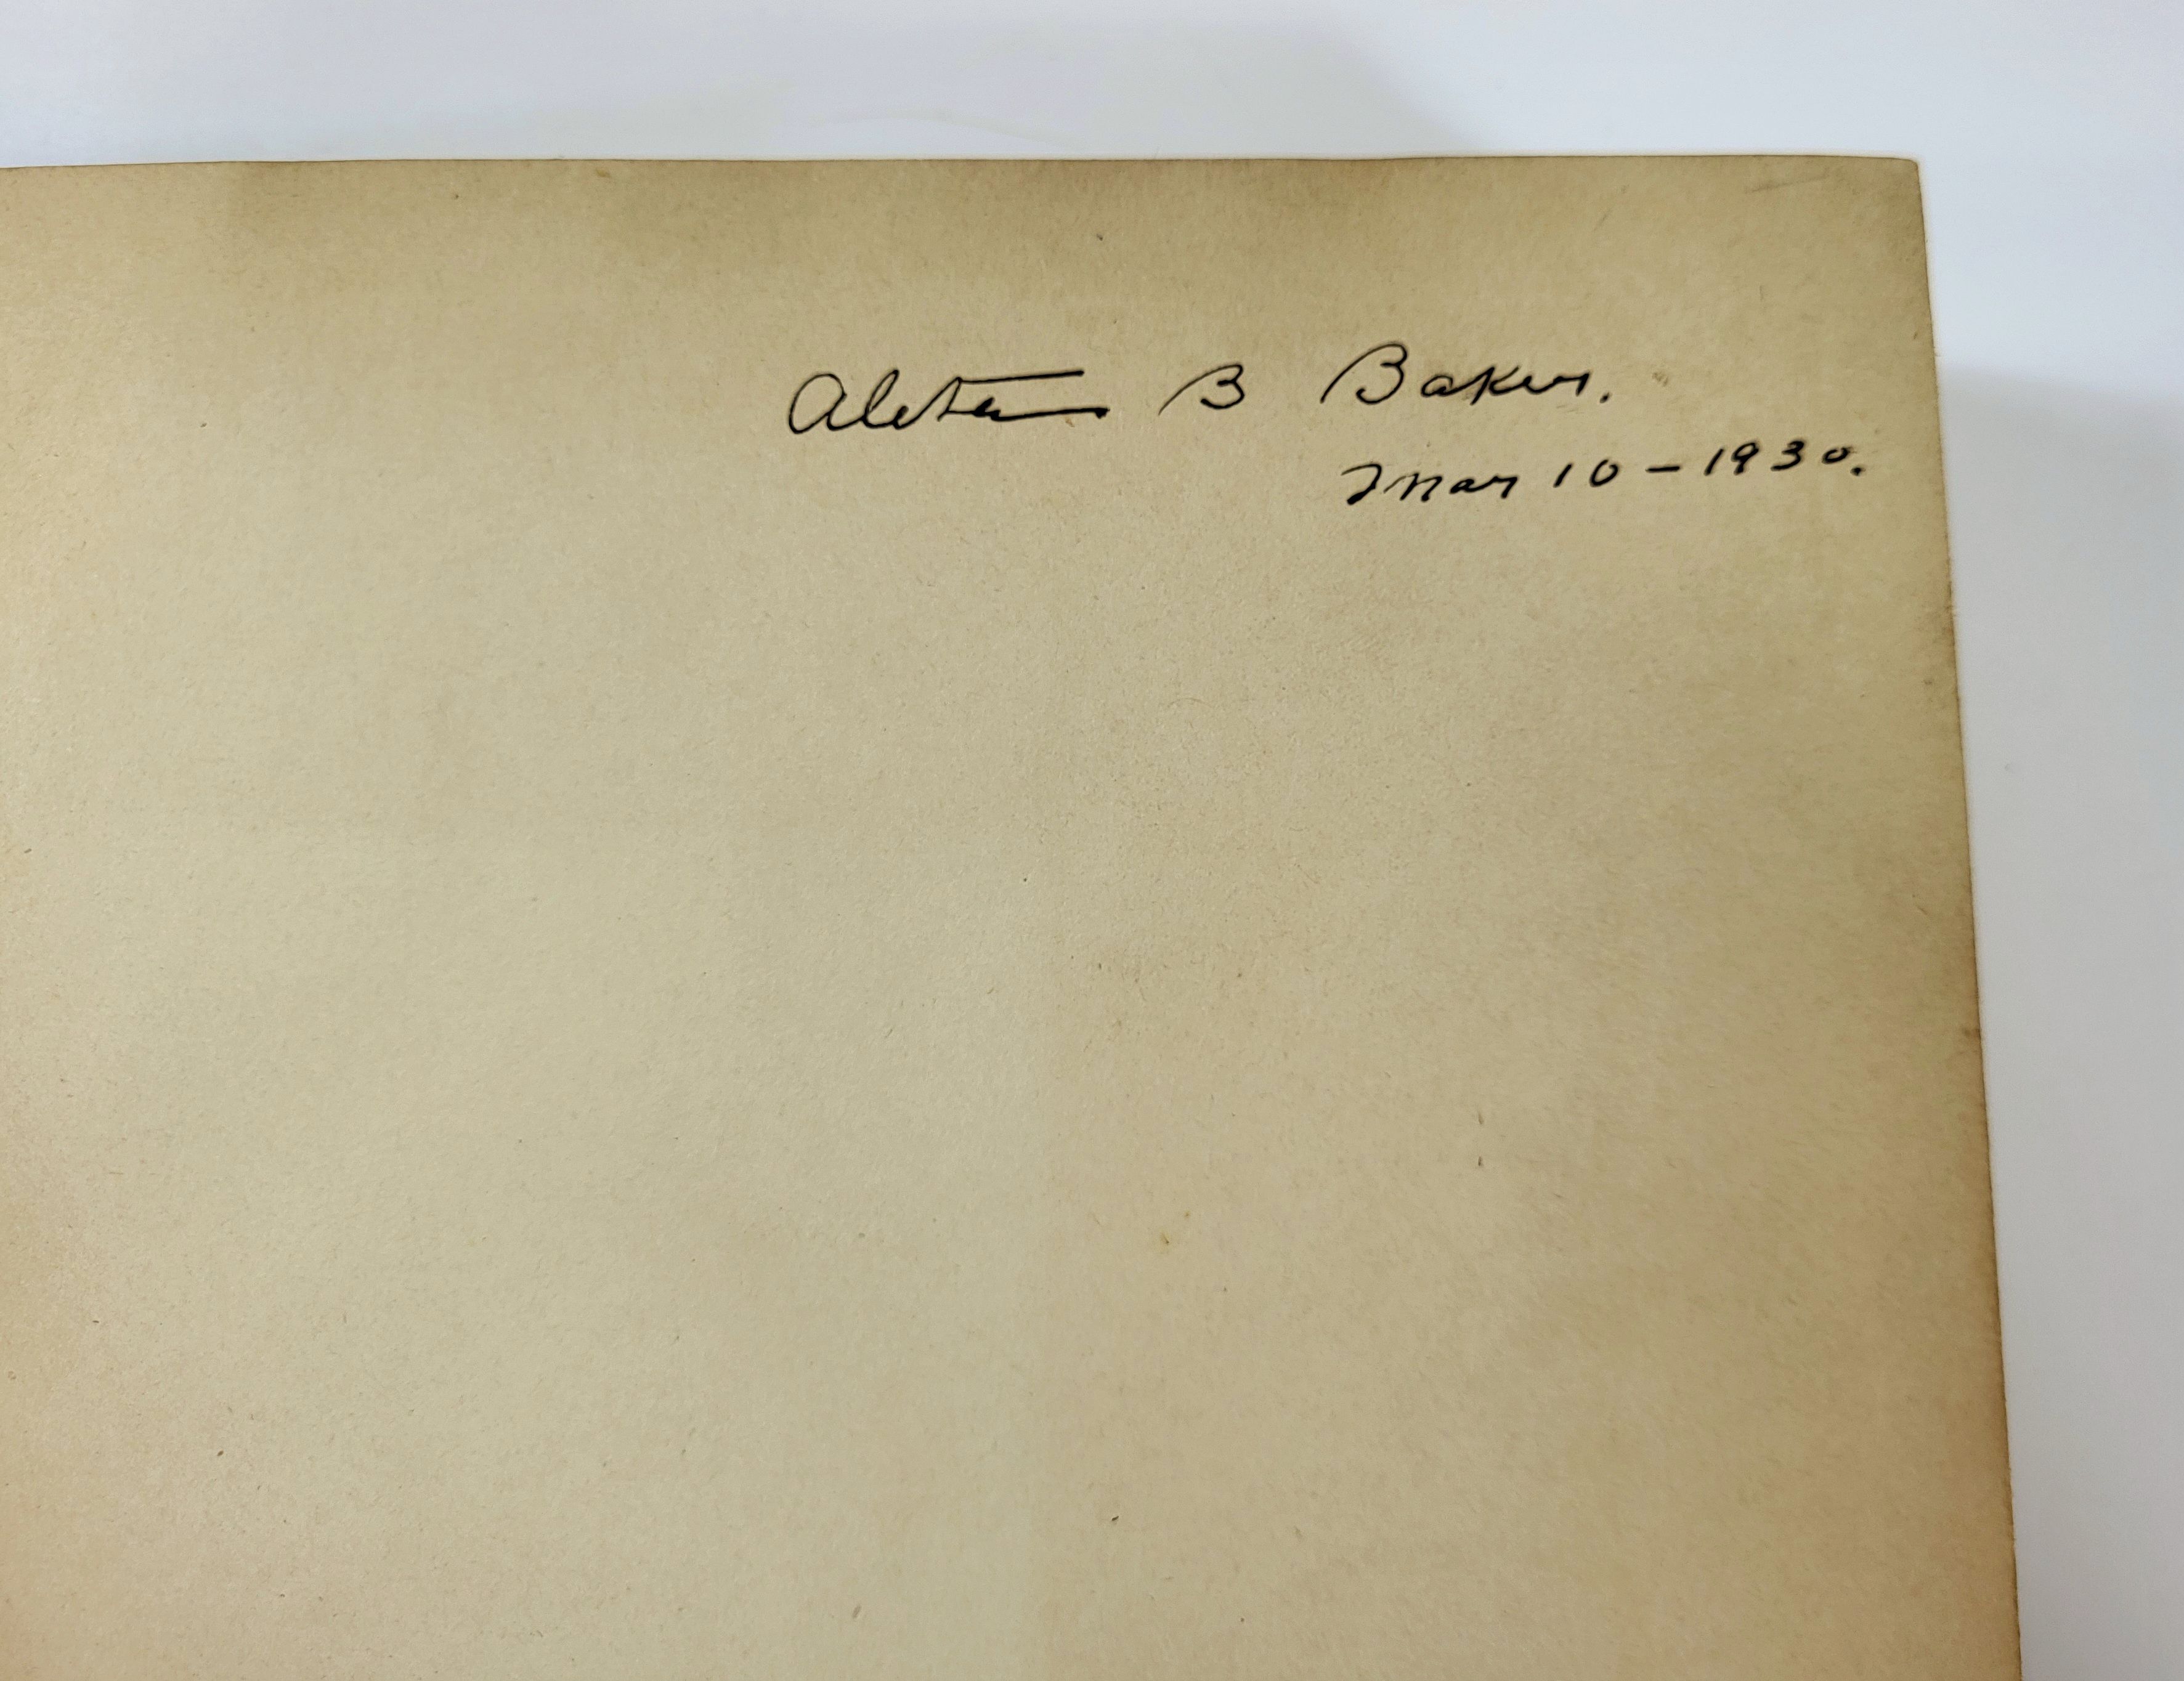 Aleta B Baker.
Mar 10 - 1930.